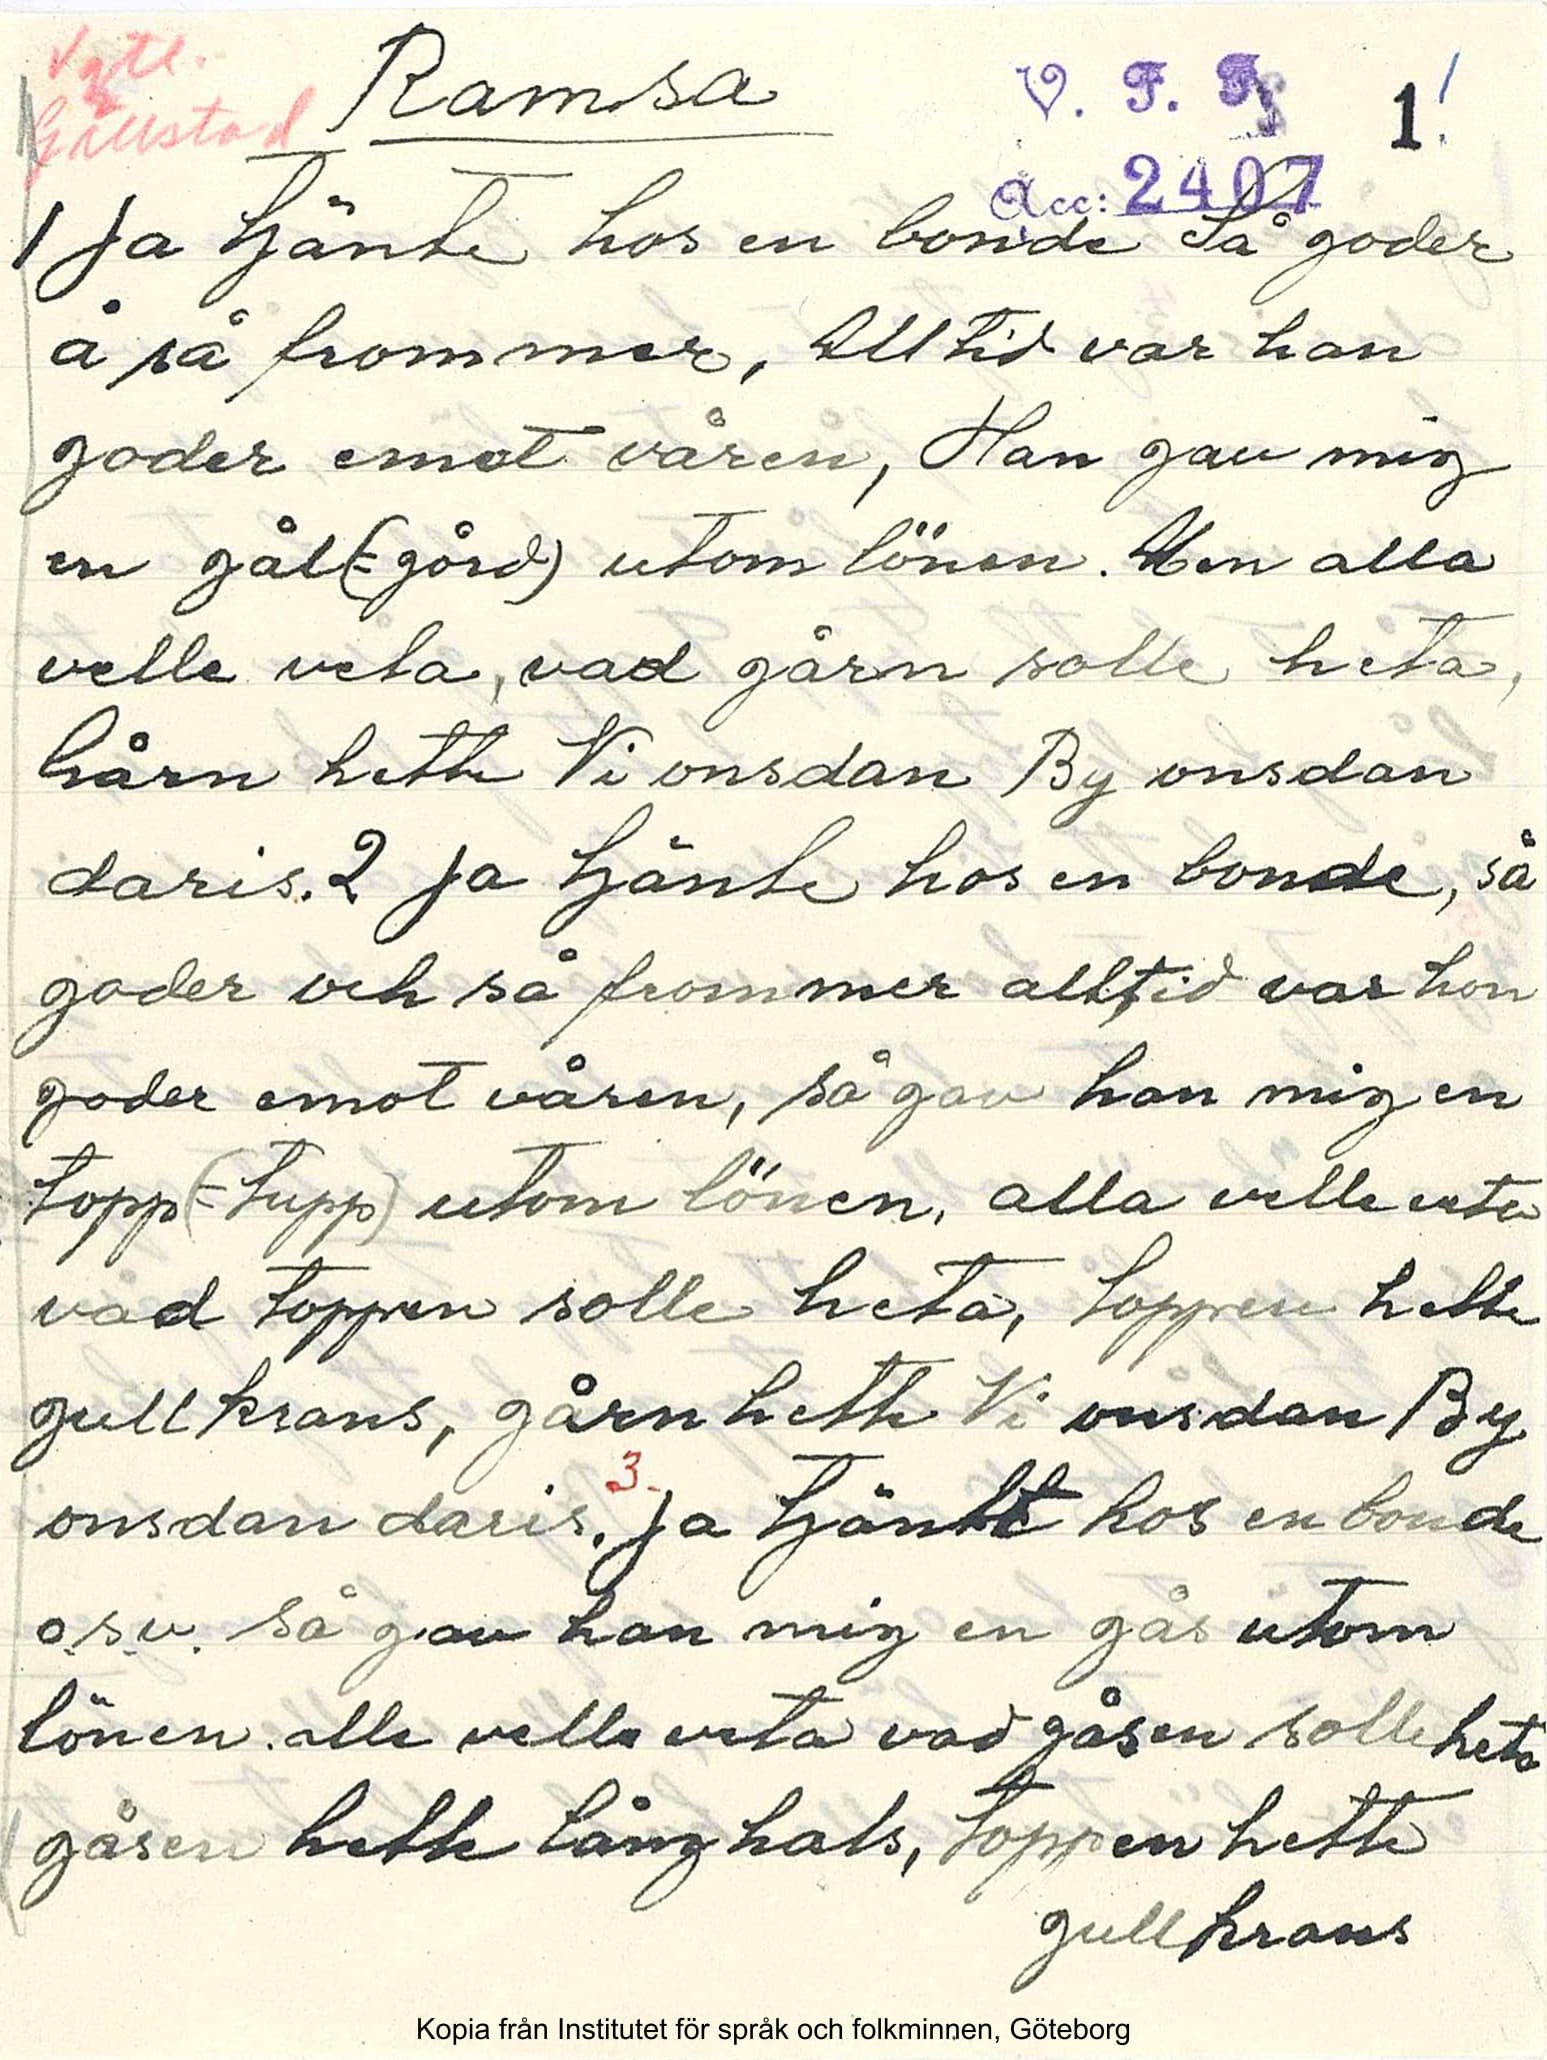 Vgtl.
Gillstad
Ramsa
V. F. F.
1!
Acc: 2407
1 Ja tjänte hos en bonde Så goder
å så frommer, Alltid var han
goder emot våren, Han gav mig
en gål (= gård) utom lönen. Men alla
velle veta, vad gårn solle heta,
gårn hette Vi onsdan By onsdan
daris. 2 Ja tjänte hos en bonde, så
goder och så frommer alltid var han
goder emot våren, så gav han mig en
topp (= tupp) utom lönen, alla velle veta
vad toppen solle heta, toppen hette
gullkrans, gårn hette Vi onsdan By
onsdan daris. 3. Ja tjänte hos en bonde
o.s.v. så gav han mig en gås utom
lönen. alle velle veta vad gåsen solle heta
gåsen hette långhals, toppen hette
gullkrans
Kopia från Institutet för språk och folkminnen, Göteborg